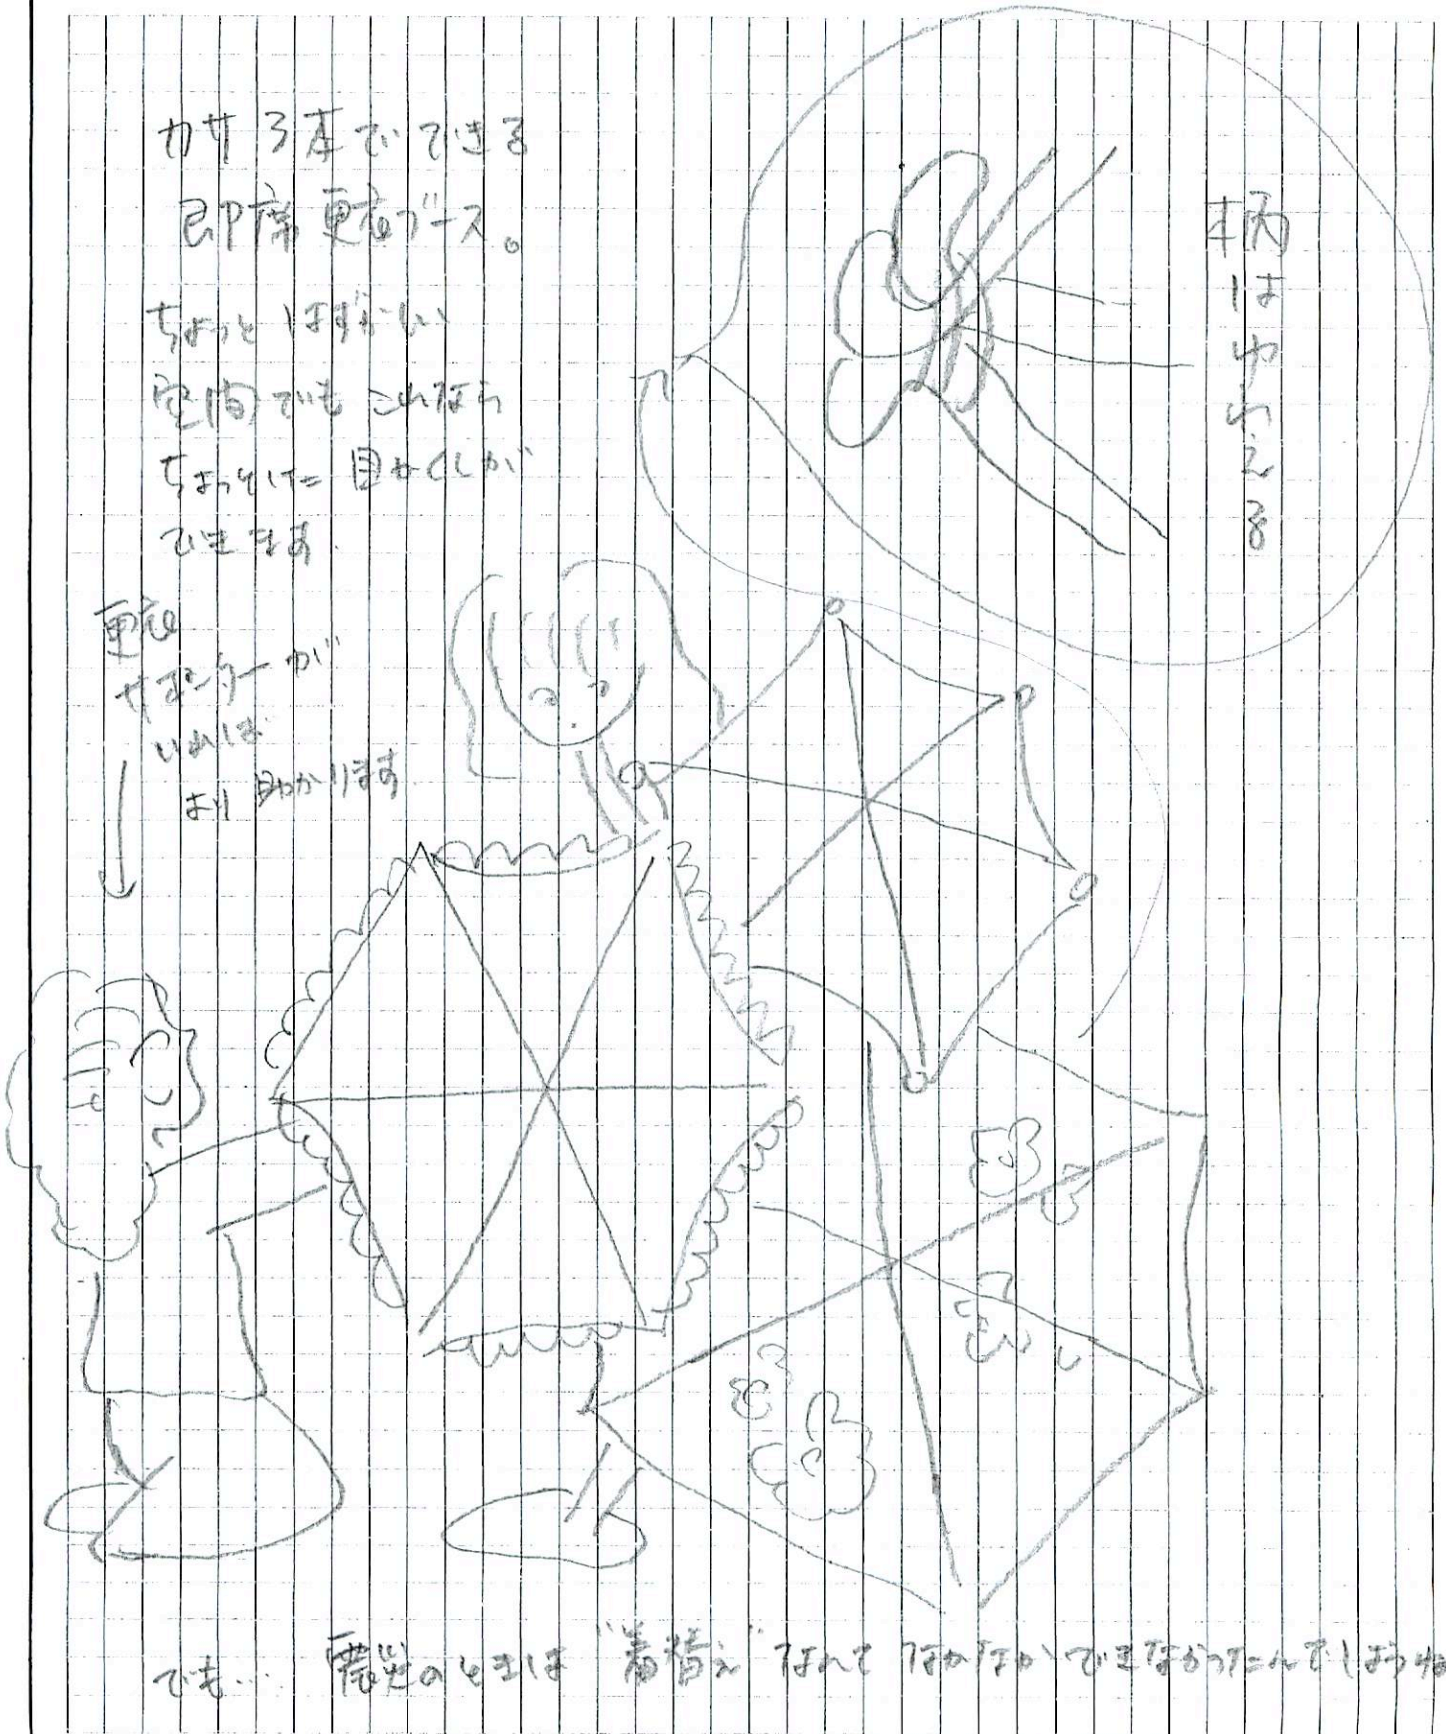 カサ3本でできる
即席更衣ブース。
ちょっとはずかしい
空間でもこれなら
ちょっとした目かくしが
できます
柄はゆわえる
更衣
サポーターが
いれば
より助かります
でも… 震災のときは “着替え” なんて なかなかできなかったんでしょうね